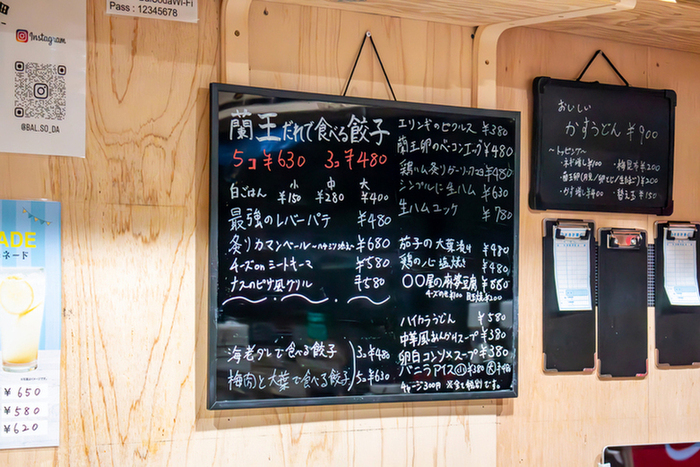 Pass : 12345678
Instagram
@BAL.SO_DA
ADE
ネード
¥650
¥580
¥620
蘭王だれで食べる餃子
5コ ¥630 3コ ¥480
白ごはん 小 ¥150 中 ¥280 大 ¥400
最強のレバーパテ ¥480
炙りカマンベール ¥680
チーズonミートキーマ ¥580
ナスのピザ風グリル ¥580
海老ダレで食べる餃子
梅肉と大葉で食べる餃子
3コ ¥480
5コ ¥630
エリンギのピクルス ¥380
蘭王卵のベーコンエッグ ¥480
鶏ハム炙り ¥480
シンプルに生ハム ¥630
生ハムユッケ ¥780
茄子の大葉漬け ¥480
鶏の心塩焼き ¥480
〇〇屋の麻婆豆腐 ¥880
ハイカラうどん ¥580
中華風あんかけスープ ¥380
卵白コンソメスープ ¥380
バニラアイス 小 ¥380
チャージ300円 税別です。
おいしい
かすうどん ¥900
〜トッピング〜
ネギ増し ¥100
梅昆布 ¥200
かす増し ¥400
替え玉 ¥150